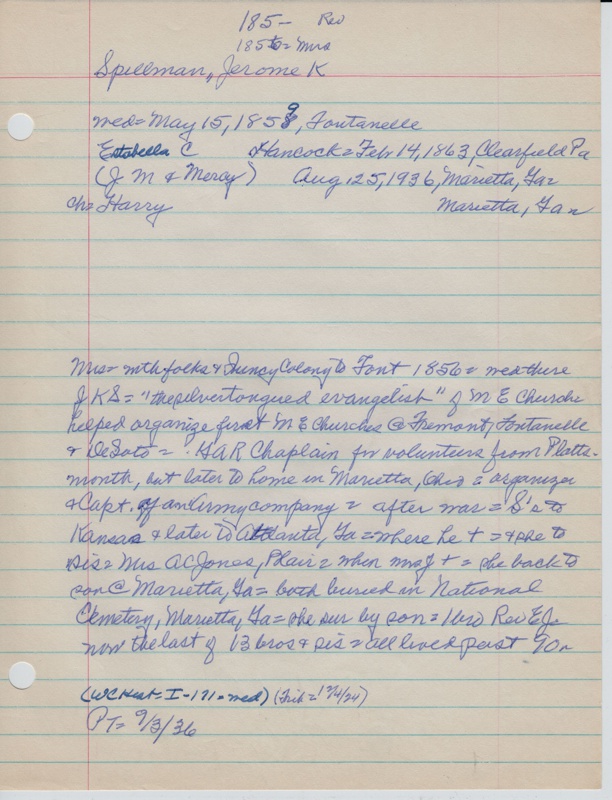 185- Rev
1856= Mrs
Spellman, Jerome K
med= May 15, 1859, Fontanelle
Estabella C Hancock= Feb 14, 1863, Clearfield Pa
(J M & Mercy) Aug 25, 1936, Marietta, Ga=
ch= Harry Marietta, Ga=
Mrs= wth folks & Quincy Colony to Font 1856= med there
J K S= "the silver tongued evangelist" of M E Church=
helped organize first M E Churches @ Fremont, Fontanelle
& DeSoto= GAR Chaplain for volunteers from Platts-
mouth, but later to home in Marietta, Ohio= organizer
& Capt. of an Army company= after war= S's to
Kansas & later to Atlanta, Ga= where he += & she to
sis= Mrs A C Jones, Blair= when += she back to
son @ Marietta, Ga= both buried in National
Cemetery, Marietta, Ga= she sur by son= 1 bro Rev E J=
now the last of 13 bros & sis= all lived past 70=
(WC Hist- I-171= med) (Trib= 12/4/24)
PT= 9/3/36